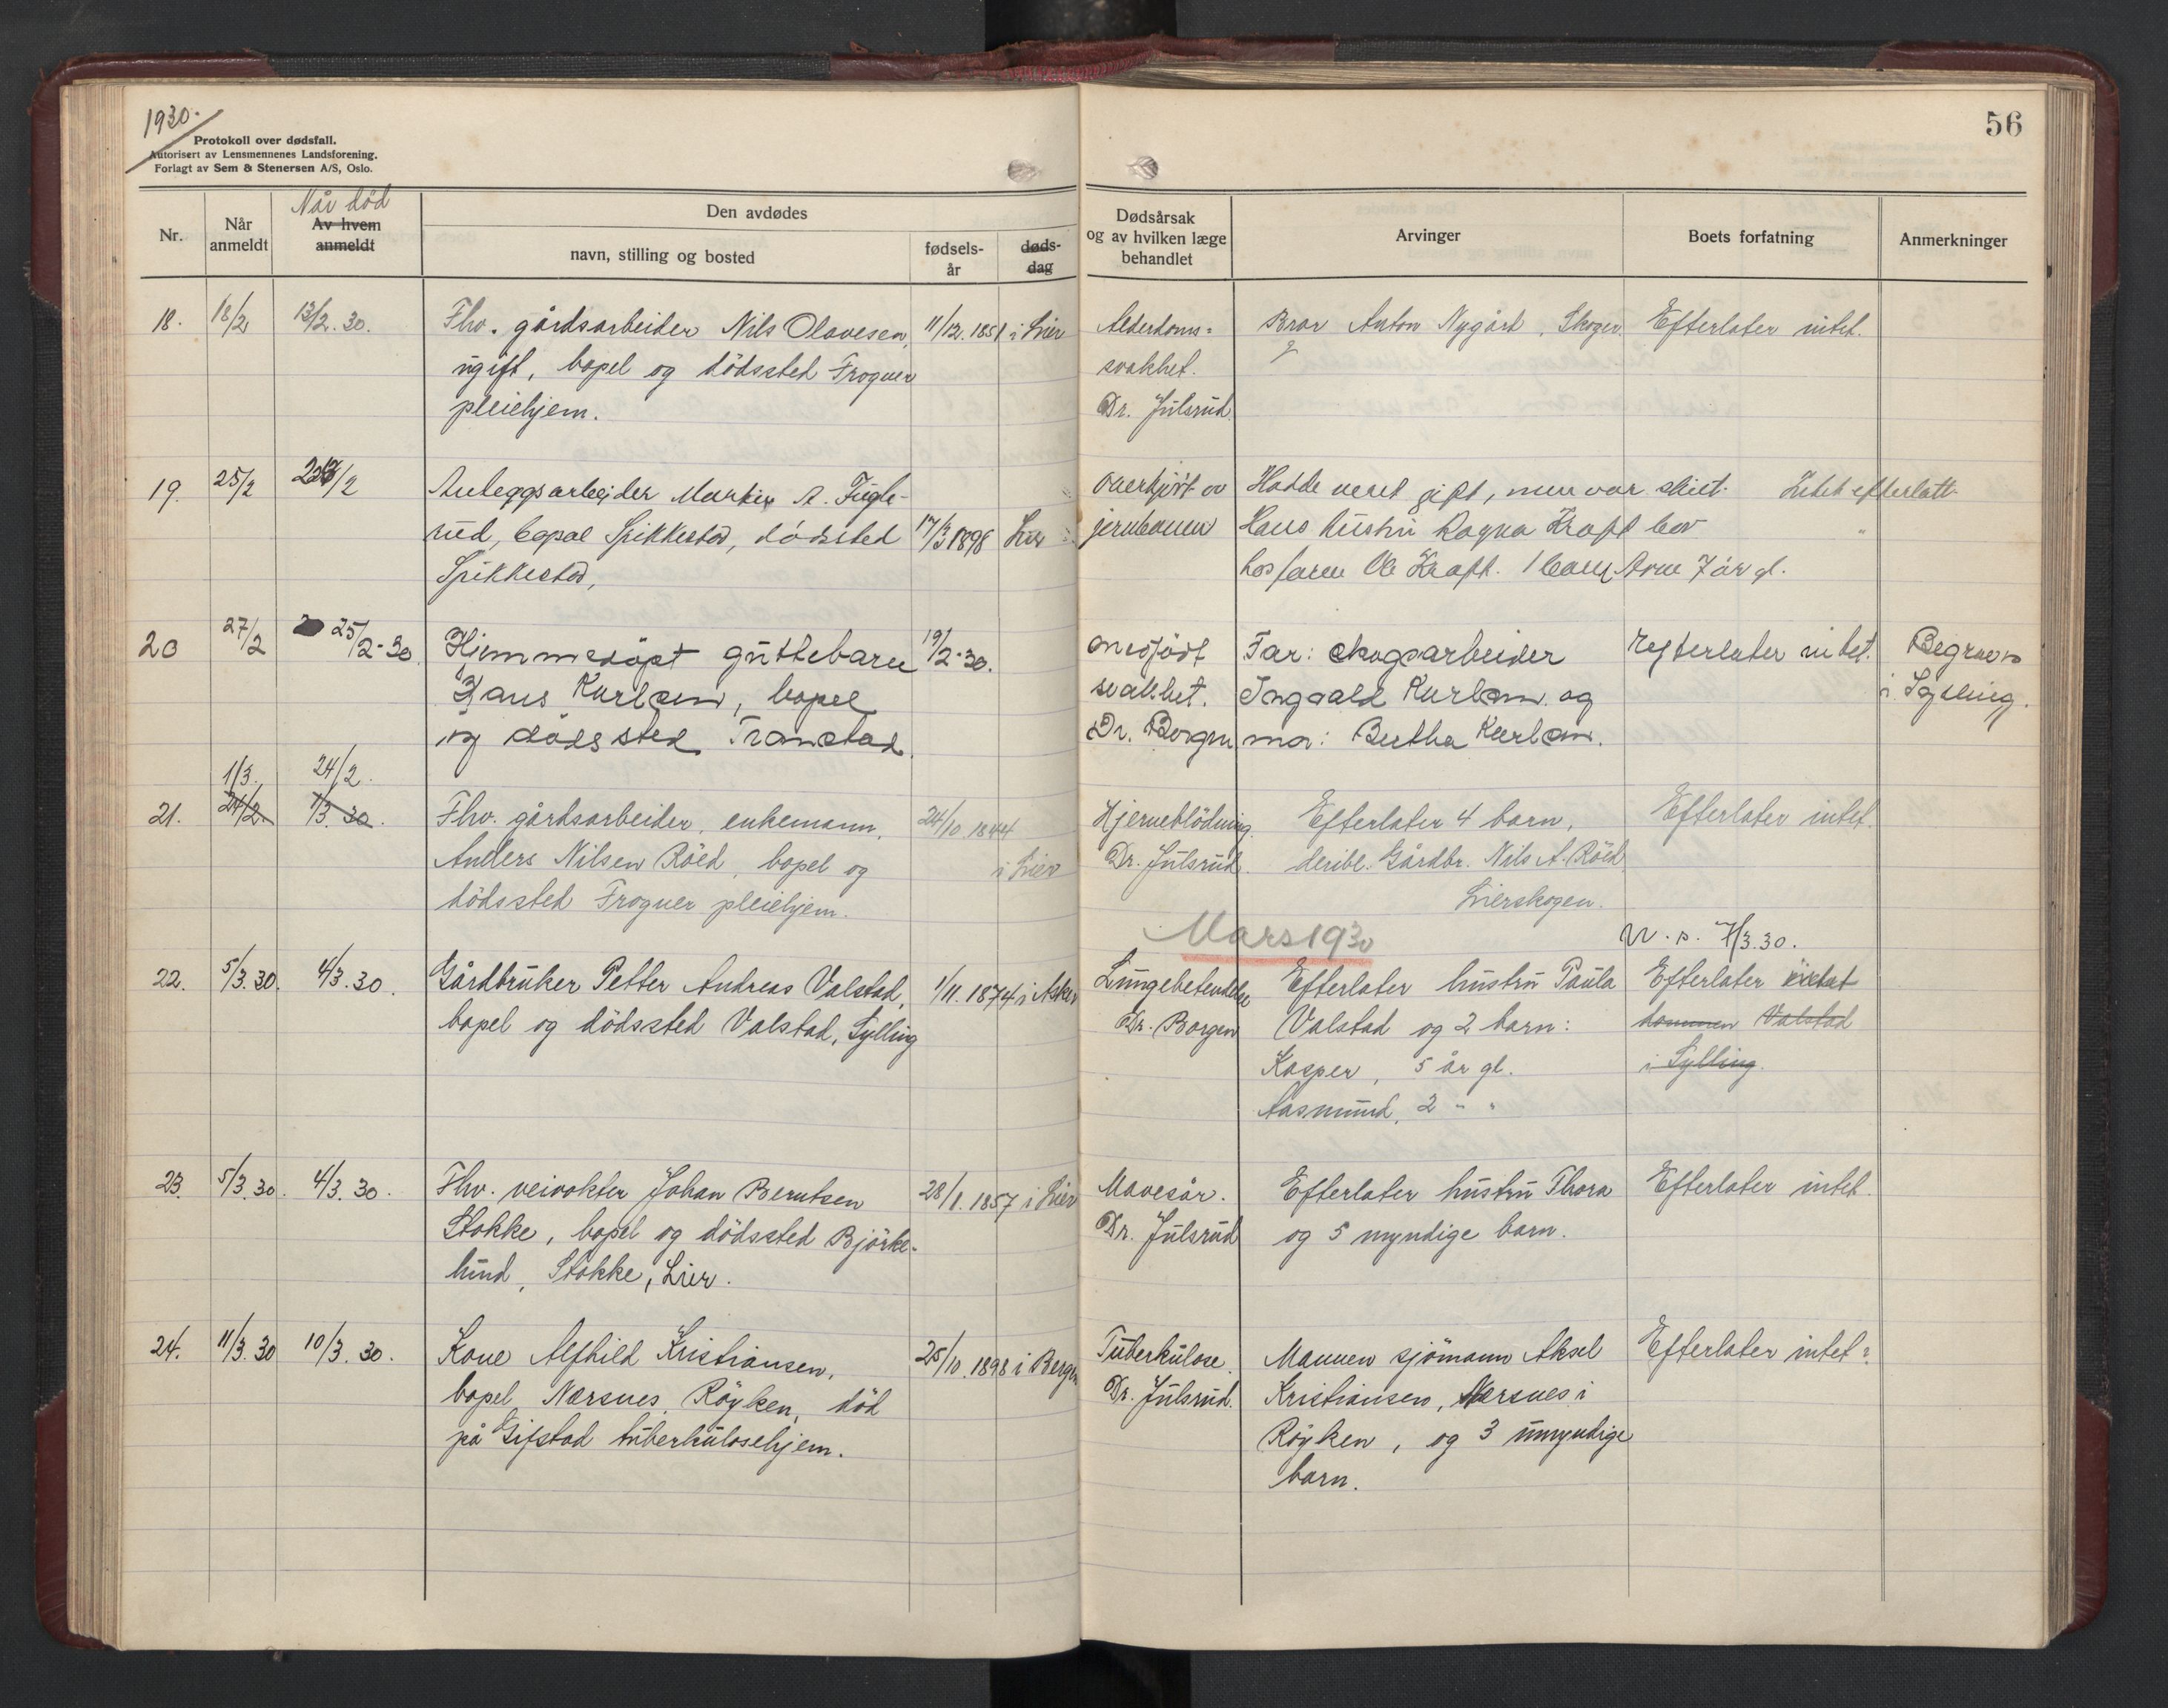 1930.
Protokoll over dødsfall.
Autorisert av Lensmennenes Landsforening.
Forlagt av Sem & Stenersen A/S, Oslo.
56
Nr.
Når anmeldt
Når død
Av hvem anmeldt
Den avdødes
navn, stilling og bosted
fødsels-
år
døds-
dag
Dødsårsak
og av hvilken læge
behandlet
Arvinger
Boets forfatning
Anmerkninger
18. 18/2 13/2. 30. Fhv. gårdsarbeider Nils Olavesen, 11/12. 1851 i Lier Alderdoms= Bror Anton Nygård, Skoger. Efterlater intet.
ugift, bopel og dödssted Frogner svakhet.
pleiehjem. Dr. Julsrud.
19. 25/2 /2 Anleggsarbeider A. Fugle- overkjört av Hadde veret gift, men var skilt. Intet efterlatt.
rud, bopel Spikkestad, dödsted 17/3 1898 Lier jernbanen Hans hustru Ragna Kraft bor
Spikkestad, hos faren Ole Kraft. 1 barn Arne 7 år gl.
20 27/2 25/2-30. Hjemmedöpt guttebarn 19/2-30. medfödt Far: skogsarbeider Efterlater intet. Begraves
Hans Kurlam, bopel svakhet. Ingvald Kurlam og i Sylling.
og dödssted Transtad. Dr. Borgen mor: Bertha Kurlam.
1/3. 24/2.
21. 24/2. 1/3. 30. Fhv. gårdsarbeider, enkemann, 24/10 1844 Hjerneblödning. Efterlater 4 barn, Efterlater intet.
Anders Nilsen Röed, bopel og i Lier Dr. Julsrud. deribl. Gårdbr. Nils A. Röed
dödssted Frogner pleiehjem. Lierskogen.
Mars 1930
7/3.30.
22. 5/3.30. 4/3.30. Gårdbruker Petter Andreas Valstad, 1/11. 1874 i Asker Lungebetendelse Efterlater hustru Paula Efterlater
bopel og dödssted Valstad, Sylling Dr. Borgen Valstad og 2 barn: Valstad
Kasper, 5 år gl. i Sylling.
Aasmund, 2 " "
23. 5/3.30. 4/3.30. Fhv. veivokter Johan Berntsen 28/1. 1857 i Lier Mavesår. Efterlater hustru Thora Efterlater intet.
Stokke, bopel og dödssted Björke- Dr. Julsrud og 5 myndige barn.
lund, Stokke, Lier.
24. 11/3.30 10/3.30. Kone Alfhild Kristiansen, 25/10. 1898 i Bergen Tuberkulose. Mannen sjömann Aksel Efterlater intet.
bopel Nærsnes, Röyken, död Dr. Julsrud. Kristiansen, Nærsnes i
på Gifstad tuberkulosehjem. Röyken, og 3 umyndige
barn.